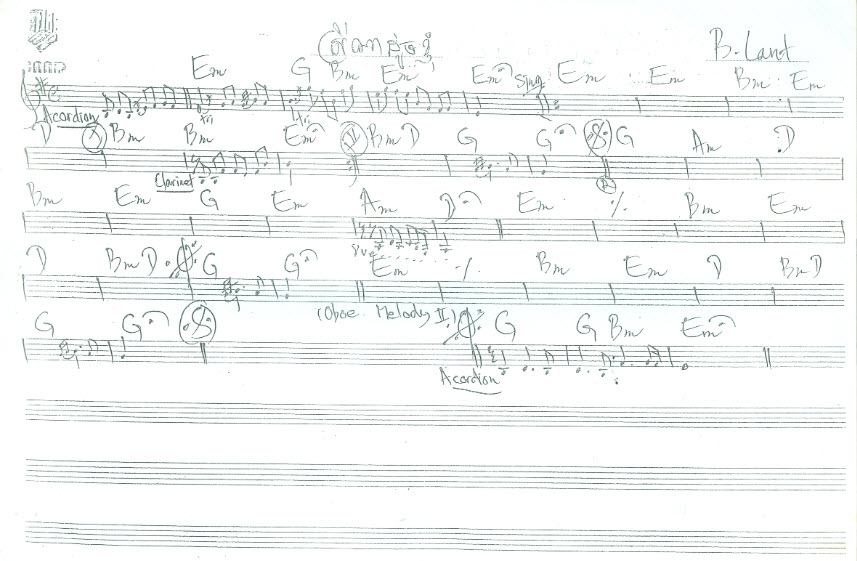 B. Lant
Em G Bm Em Em Sing Em Em Bm Em
Acordion
D Bm Bm Em Bm D G G G Am D
Clarinet
Bm Em G Em Am D Em % Bm Em
8ve
D Bm D G G Em % Bm Em D Bm D
(Oboe Melody II)
G G G G Bm Em
Acordion